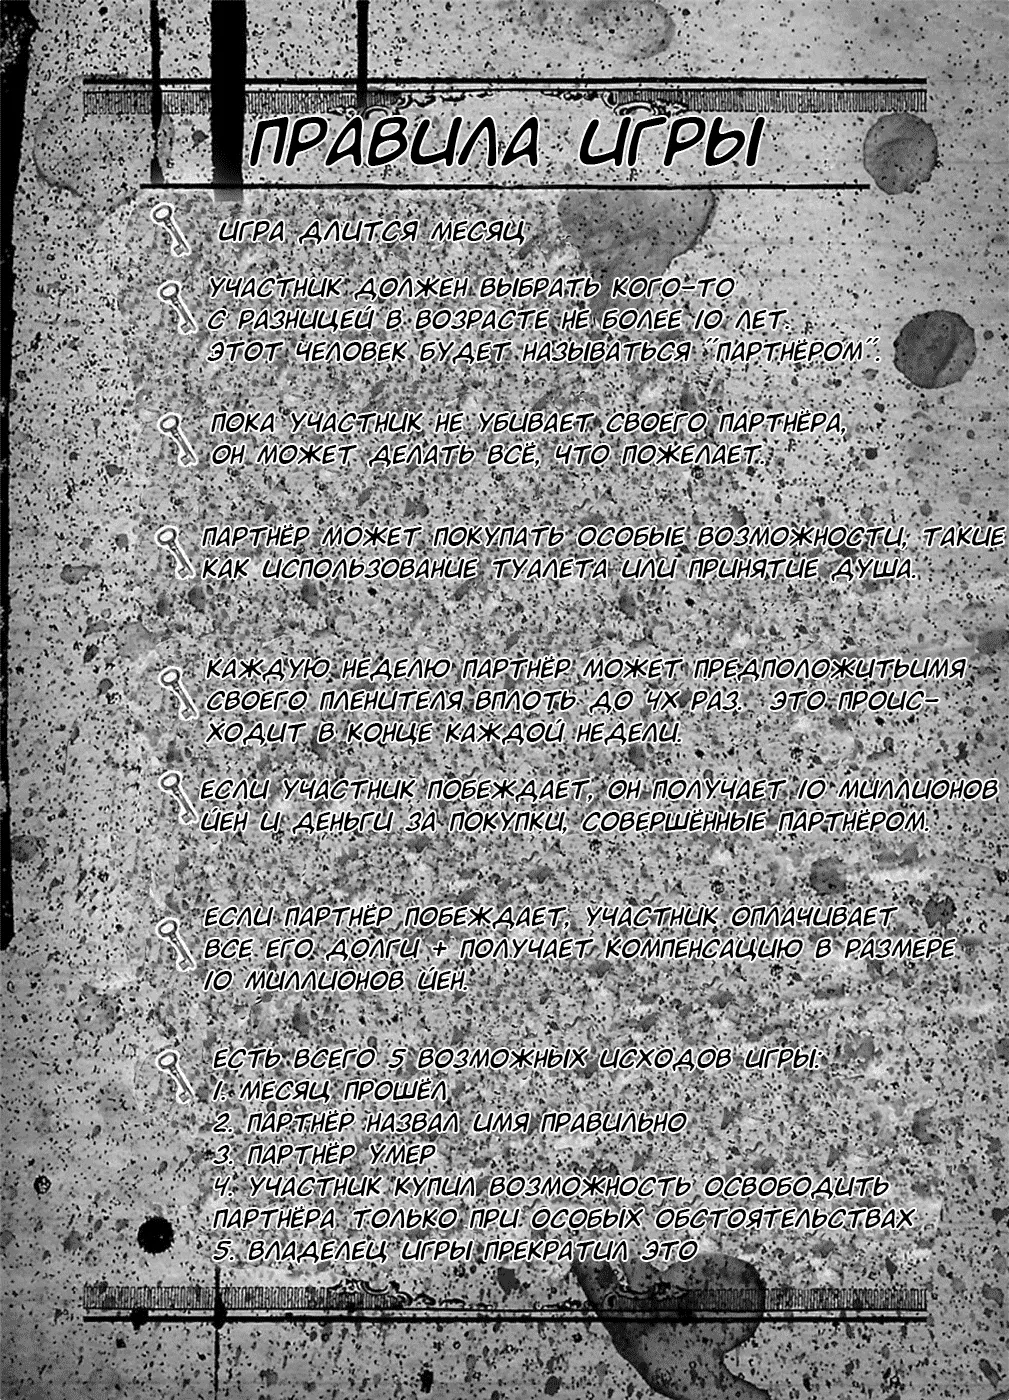 ПРАВИЛА ИГРЫ
ИГРА ДЛИТСЯ МЕСЯЦ
УЧАСТНИК ДОЛЖЕН ВЫБРАТЬ КОГО-ТО
С РАЗНИЦЕЙ В ВОЗРАСТЕ НЕ БОЛЕЕ 10 ЛЕТ.
ЭТОТ ЧЕЛОВЕК БУДЕТ НАЗЫВАТЬСЯ "ПАРТНЁРОМ".
ПОКА УЧАСТНИК НЕ УБИВАЕТ СВОЕГО ПАРТНЁРА,
ОН МОЖЕТ ДЕЛАТЬ ВСЁ, ЧТО ПОЖЕЛАЕТ.
ПАРТНЁР МОЖЕТ ПОКУПАТЬ ОСОБЫЕ ВОЗМОЖНОСТИ, ТАКИЕ
КАК ИСПОЛЬЗОВАНИЕ ТУАЛЕТА ИЛИ ПРИНЯТИЕ ДУША.
КАЖДУЮ НЕДЕЛЮ ПАРТНЁР МОЖЕТ ПРЕДПОЛОЖИТЬИМЯ
СВОЕГО ПЛЕНИТЕЛЯ ВПЛОТЬ ДО 4Х РАЗ. ЭТО ПРОИС-
ХОДИТ В КОНЦЕ КАЖДОЙ НЕДЕЛИ.
ЕСЛИ УЧАСТНИК ПОБЕЖДАЕТ, ОН ПОЛУЧАЕТ 10 МИЛЛИОНОВ
ЙЕН И ДЕНЬГИ ЗА ПОКУПКИ, СОВЕРШЁННЫЕ ПАРТНЁРОМ.
ЕСЛИ ПАРТНЁР ПОБЕЖДАЕТ, УЧАСТНИК ОПЛАЧИВАЕТ
ВСЕ ЕГО ДОЛГИ + ПОЛУЧАЕТ КОМПЕНСАЦИЮ В РАЗМЕРЕ
10 МИЛЛИОНОВ ЙЕН.
ЕСТЬ ВСЕГО 5 ВОЗМОЖНЫХ ИСХОДОВ ИГРЫ:
1. МЕСЯЦ ПРОШЁЛ
2. ПАРТНЁР НАЗВАЛ ИМЯ ПРАВИЛЬНО
3. ПАРТНЁР УМЕР
4. УЧАСТНИК КУПИЛ ВОЗМОЖНОСТЬ ОСВОБОДИТЬ
ПАРТНЁРА ТОЛЬКО ПРИ ОСОБЫХ ОБСТОЯТЕЛЬСТВАХ
5. ВЛАДЕЛЕЦ ИГРЫ ПРЕКРАТИЛ ЭТО